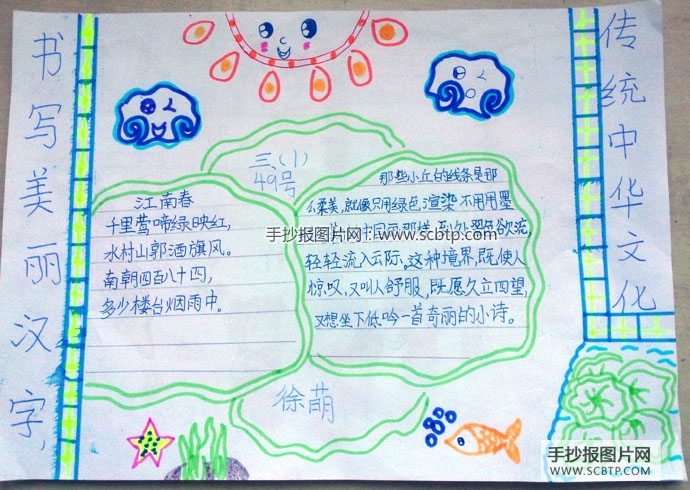 书写美丽汉字,
传统中华文化
三、(1)
49号
江南春
千里莺啼绿映红,
水村山郭酒旗风。
南朝四百八十四,
多少楼台烟雨中。
那些小丘的线条是那
么柔美,就像只用绿色渲染 不用用墨
国画那样,到处翠色欲流,
轻轻流入云际。这种境界,既使人
惊叹,又叫人舒服,既愿久立四望,
又想坐下低吟一首奇丽的小诗。
手抄报图片网 www.scbtp.com
徐萌
手抄报图片网
WWW.SCBTP.COM